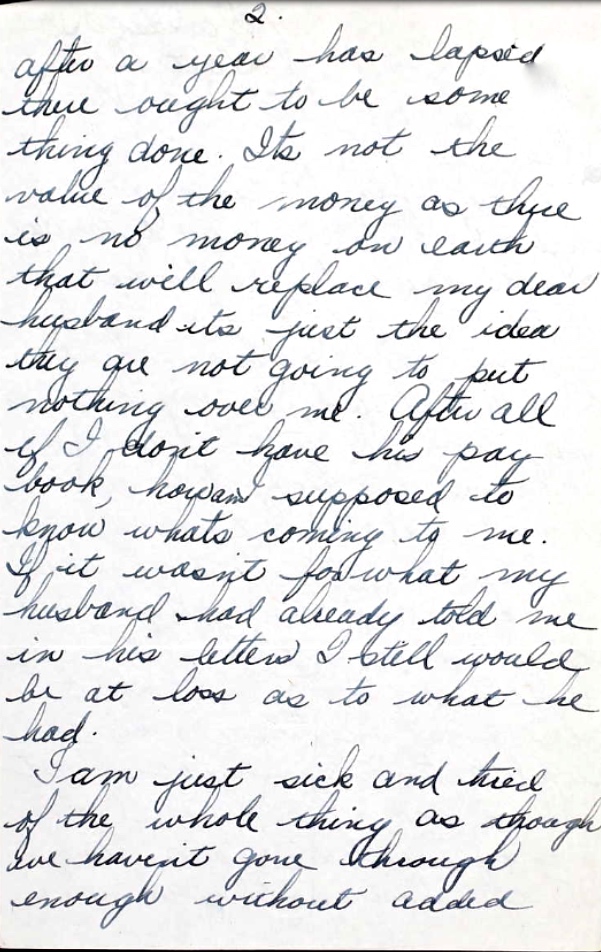 2.
after a year has lapsed
there ought to be some
thing done. Its not the
value of the money as there
is no money on earth
that will replace my dear
husband its just the idea
they are not going to put
nothing over me. After all
if I don't have his pay
book, how am I supposed to
know whats coming to me.
If it wasn't for what my
husband had already told me
in his letters I still would
be at loss as to what he
had.
I am just sick and tired
of the whole thing as though
we haven't gone through
enough without added